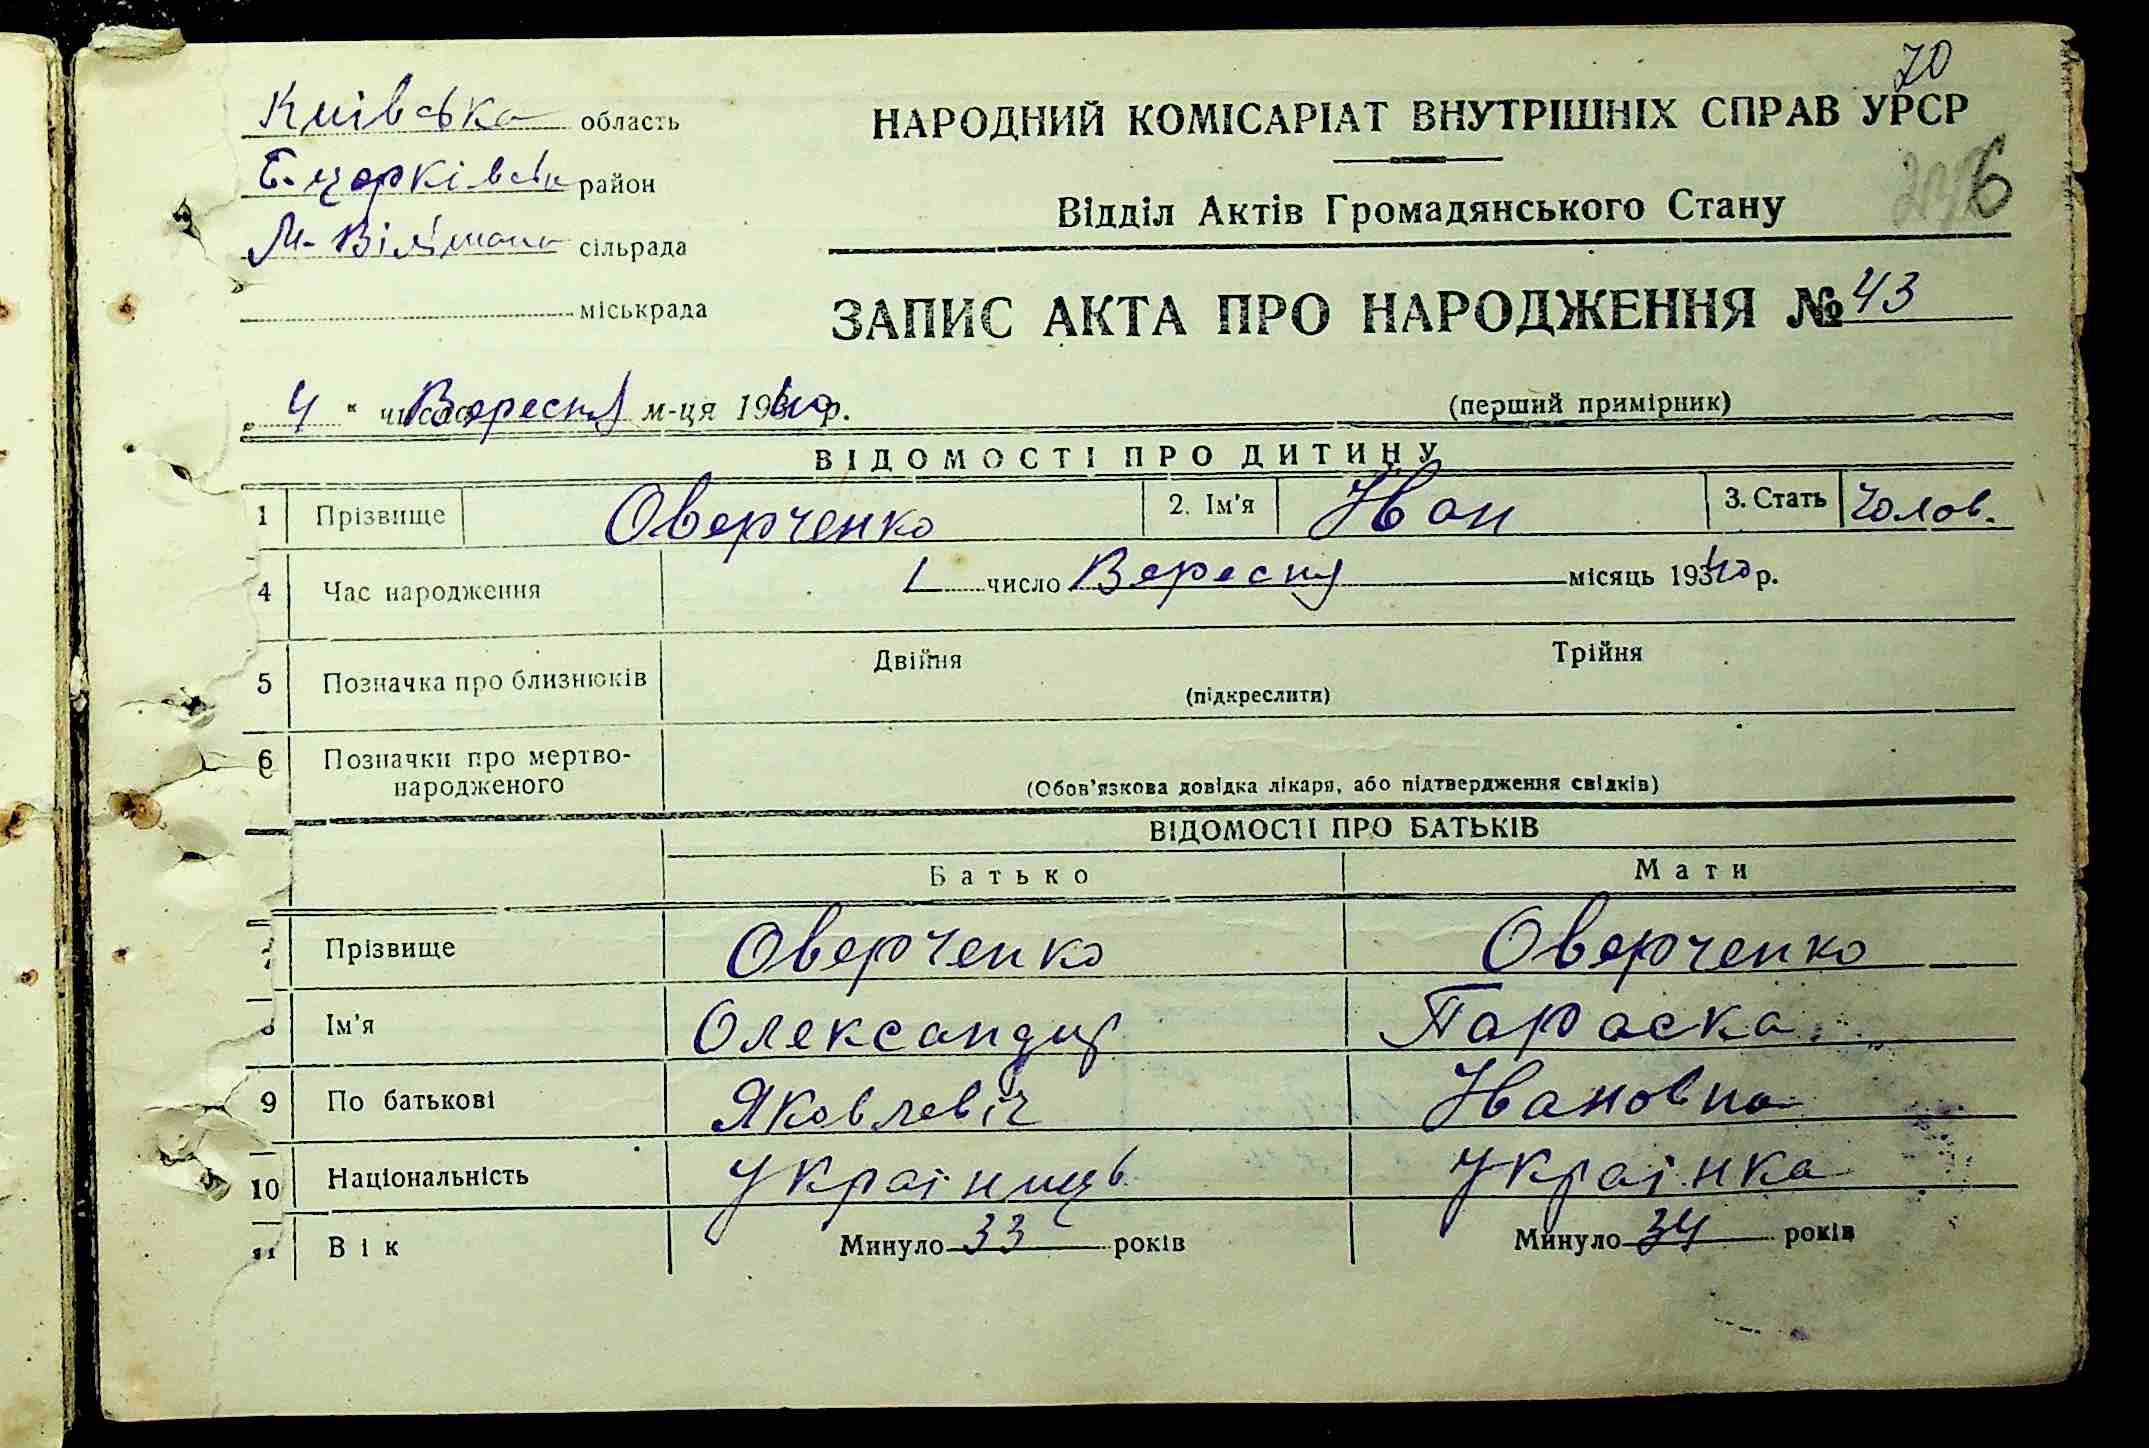 70
Київська область
НАРОДНИЙ КОМІСАРІАТ ВНУТРІШНІХ СПРАВ УРСР
Б-церківськ район
6
Відділ Актів Громадянського Стану
М- сільрада
міськрада
ЗАПИС АКТА ПРО НАРОДЖЕННЯ № 43
„ 4 " числа Вересня м-ця 1940 р.
(перший примірник)
ВІДОМОСТІ ПРО ДИТИНУ
1 Прізвище Оверченко 2. Ім'я Іван 3. Стать Чолов.
4 Час народження 1 число Вересня місяць 1940 р.
5 Позначка про близнюків Двійня Трійня
(підкреслити)
6 Позначки про мертво-
народженого (Обов'язкова довідка лікаря, або підтвердження свідків)
ВІДОМОСТІ ПРО БАТЬКІВ
Батько Мати
7 Прізвище Оверченко Оверченко
8 Ім'я Олександр Параска
9 По батькові Яковлевіч Ивановна
10 Національність Українець Українка
11 Вік Минуло 33 років Минуло 34 років